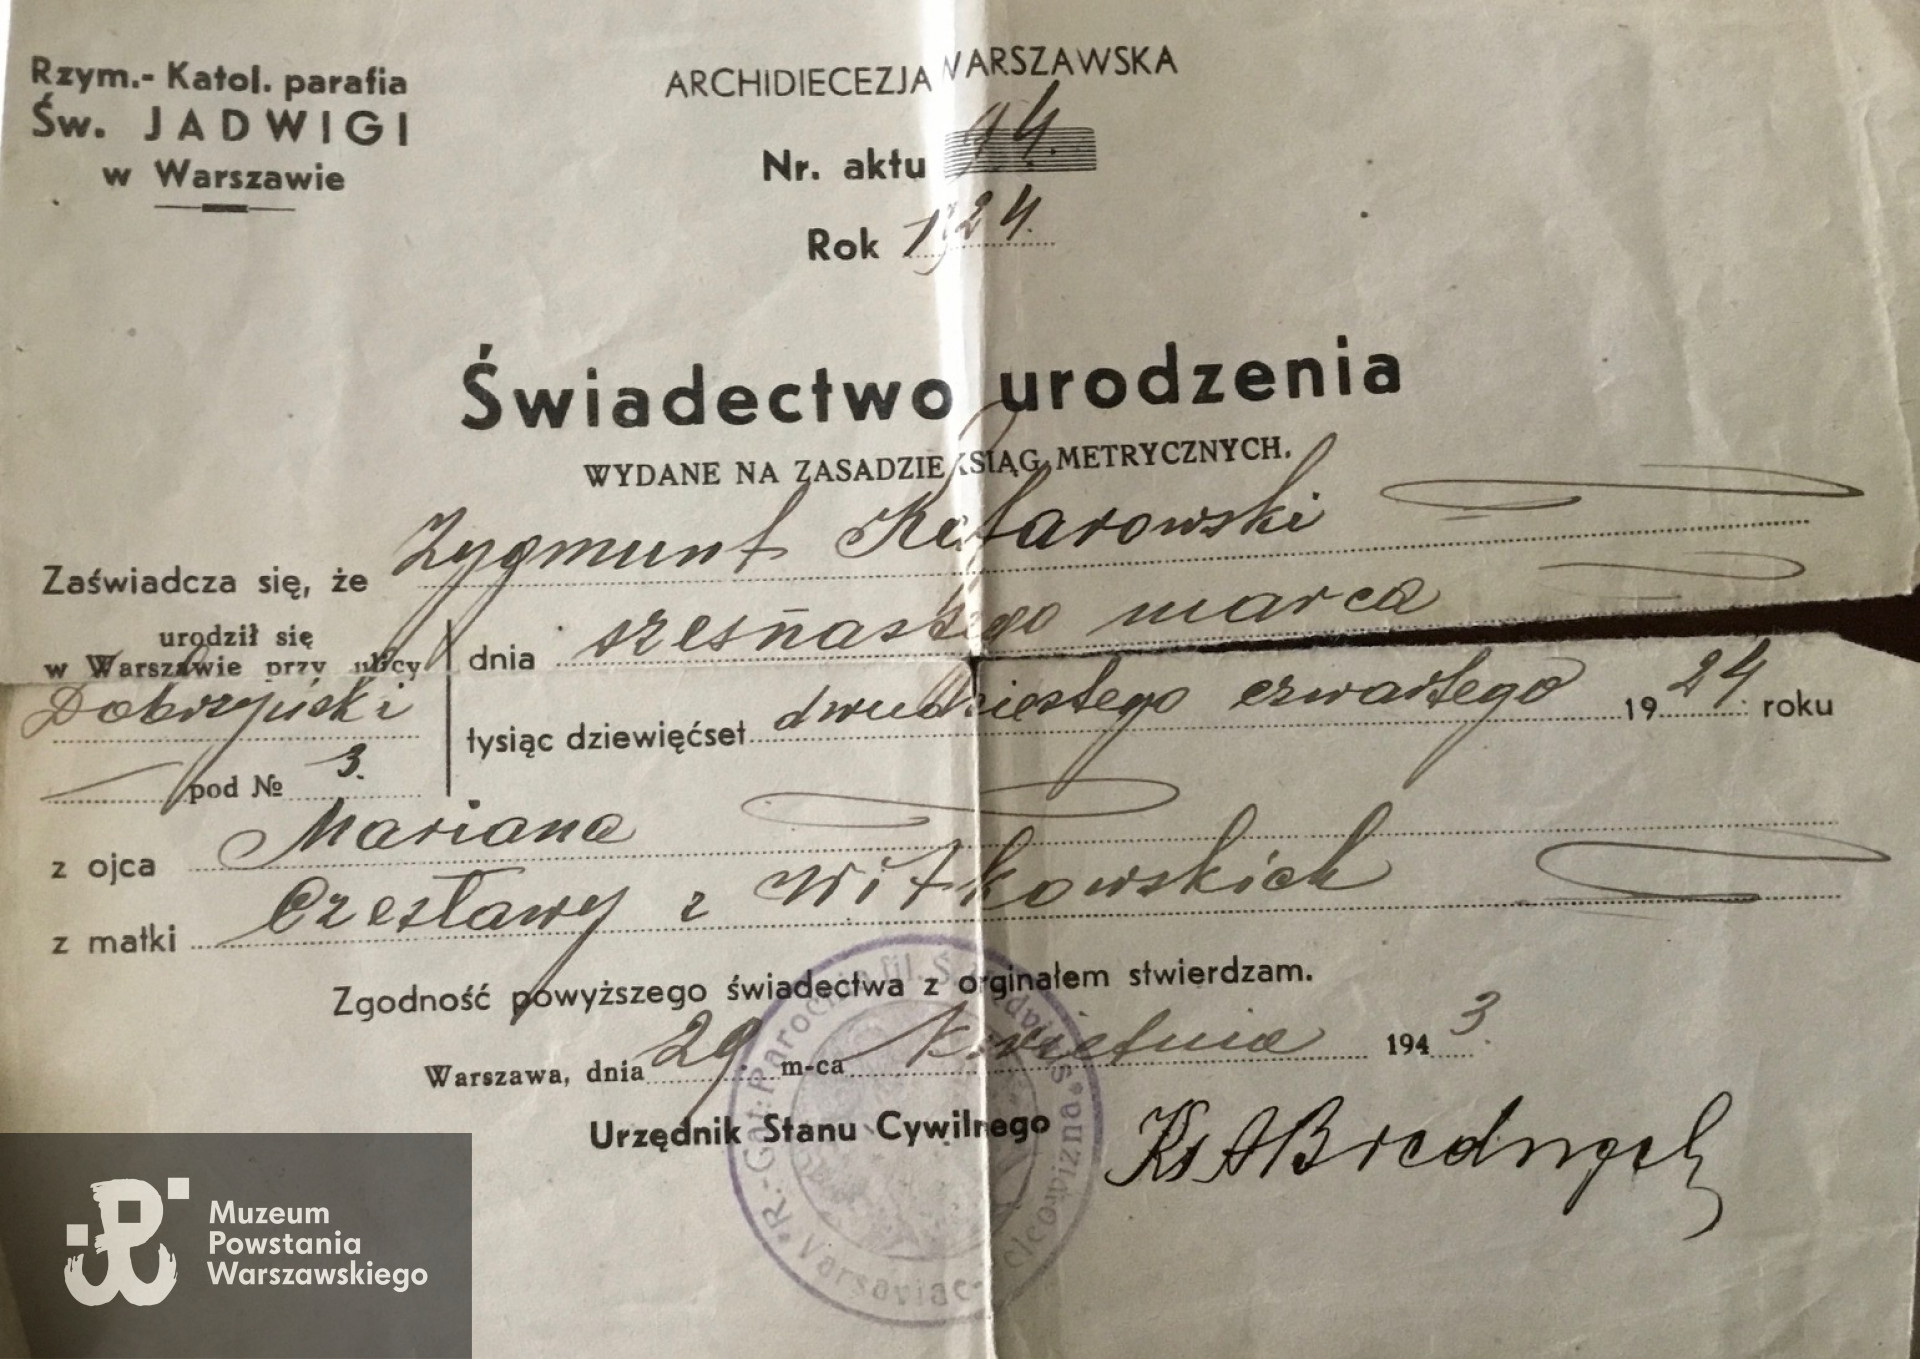 Rzym.- Katol. parafia
Św. JADWIGI
w Warszawie
ARCHIDIECEZJA WARSZAWSKA
Nr. aktu 94.
Rok 1924.
Świadectwo urodzenia
WYDANE NA ZASADZIE KSIĄG METRYCZNYCH.
Zaświadcza się, że Zygmunt Kotarowski
urodził się
w Warszawie przy ulicy
Dobrzyński
pod № 3.
dnia szesnastego marca
tysiąc dziewięćset dwudziestego czwartego 1924. roku
z ojca Mariana
z matki Czesławy z Witkowskich
Zgodność powyższego świadectwa z orginałem stwierdzam.
Warszawa, dnia 29. m-ca kwietnia 1943.
Urzędnik Stanu Cywilnego
Ks A
Muzeum
Powstania
Warszawskiego